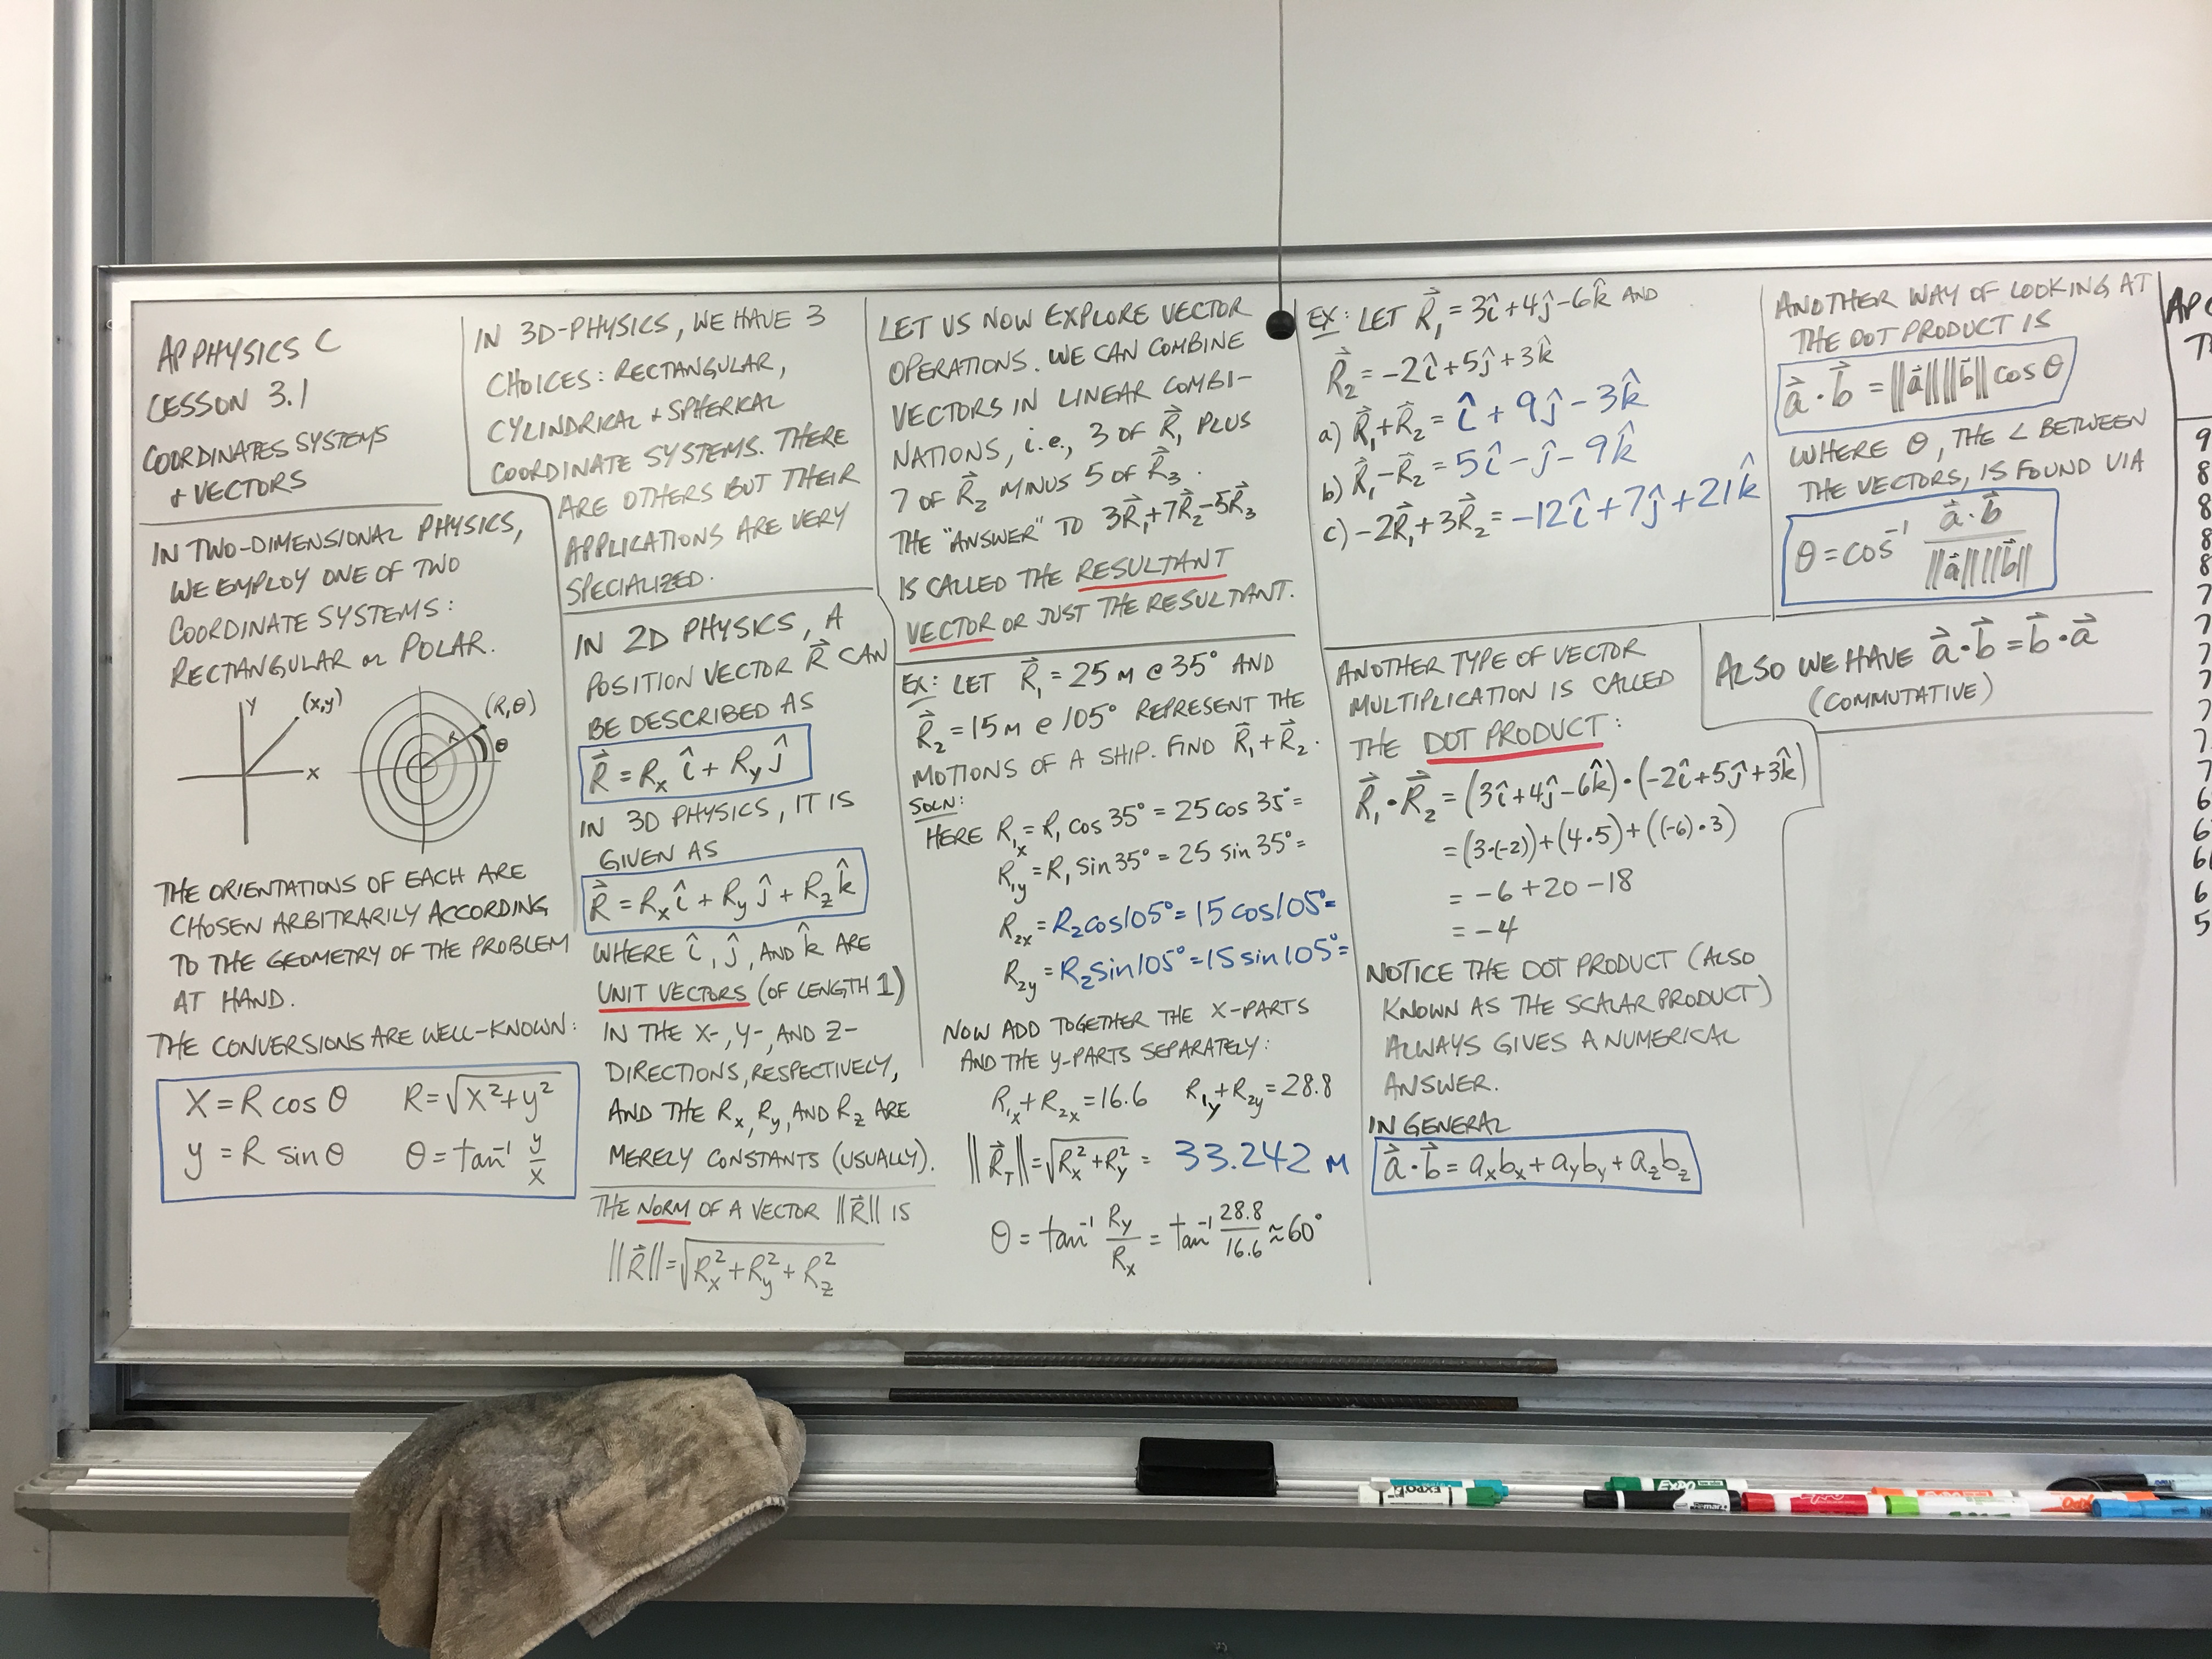 AP PHYSICS C
LESSON 3.1
COORDINATES SYSTEMS
+ VECTORS
IN TWO-DIMENSIONAL PHYSICS,
WE EMPLOY ONE OF TWO
COORDINATE SYSTEMS:
RECTANGULAR or POLAR.
Y
(x,y)
X
(R,θ)
R
θ
THE ORIENTATIONS OF EACH ARE
CHOSEN ARBITRARILY ACCORDING
TO THE GEOMETRY OF THE PROBLEM
AT HAND.
THE CONVERSIONS ARE WELL-KNOWN:
X = R cos θ R = √(x²+y²)
y = R sin θ θ = tan⁻¹ y/x
IN 3D-PHYSICS, WE HAVE 3
CHOICES: RECTANGULAR,
CYLINDRICAL + SPHERICAL
COORDINATE SYSTEMS. THERE
ARE OTHERS BUT THEIR
APPLICATIONS ARE VERY
SPECIALIZED.
IN 2D PHYSICS, A
POSITION VECTOR R⃗ CAN
BE DESCRIBED AS
R⃗ = Rₓ î + R_y ĵ
IN 3D PHYSICS, IT IS
GIVEN AS
R⃗ = Rₓ î + R_y ĵ + R_z k̂
WHERE î, ĵ, AND k̂ ARE
UNIT VECTORS (OF LENGTH 1)
IN THE X-, Y-, AND Z-
DIRECTIONS, RESPECTIVELY,
AND THE Rₓ, R_y, AND R_z ARE
MERELY CONSTANTS (USUALLY).
THE NORM OF A VECTOR ||R⃗|| IS
||R⃗|| = √(Rₓ² + R_y² + R_z²)
LET US NOW EXPLORE VECTOR
OPERATIONS. WE CAN COMBINE
VECTORS IN LINEAR COMBI-
NATIONS, i.e., 3 OF R⃗₁ PLUS
7 OF R⃗₂ MINUS 5 OF R⃗₃.
THE "ANSWER" TO 3R⃗₁+7R⃗₂-5R⃗₃
IS CALLED THE RESULTANT
VECTOR OR JUST THE RESULTANT.
EX: LET R⃗₁ = 25 M @ 35° AND
R⃗₂ = 15 M @ 105° REPRESENT THE
MOTIONS OF A SHIP. FIND R⃗₁+R⃗₂.
SOLN:
HERE R₁ₓ = R₁ cos 35° = 25 cos 35° =
R₁y = R₁ sin 35° = 25 sin 35° =
R₂ₓ = R₂ cos 105° = 15 cos 105° =
R₂y = R₂ sin 105° = 15 sin 105° =
NOW ADD TOGETHER THE X-PARTS
AND THE Y-PARTS SEPARATELY:
R₁ₓ + R₂ₓ = 16.6 R₁y + R₂y = 28.8
||R⃗_T|| = √(Rₓ² + R_y²) = 33.242 M
θ = tan⁻¹ R_y/Rₓ = tan⁻¹ 28.8/16.6 ≈ 60°
EX: LET R⃗₁ = 3î + 4ĵ - 6k̂ AND
R⃗₂ = -2î + 5ĵ + 3k̂
a) R⃗₁+R⃗₂ = î + 9ĵ - 3k̂
b) R⃗₁-R⃗₂ = 5î - ĵ - 9k̂
c) -2R⃗₁+3R⃗₂ = -12î + 7ĵ + 21k̂
ANOTHER TYPE OF VECTOR
MULTIPLICATION IS CALLED
THE DOT PRODUCT:
R⃗₁ · R⃗₂ = (3î+4ĵ-6k̂)·(-2î+5ĵ+3k̂)
= (3·(-2)) + (4·5) + ((-6)·3)
= -6 + 20 - 18
= -4
NOTICE THE DOT PRODUCT (ALSO
KNOWN AS THE SCALAR PRODUCT)
ALWAYS GIVES A NUMERICAL
ANSWER.
IN GENERAL
a⃗ · b⃗ = aₓbₓ + a_yb_y + a_zb_z
ANOTHER WAY OF LOOKING AT
THE DOT PRODUCT IS
a⃗ · b⃗ = ||a⃗|| ||b⃗|| cos θ
WHERE θ, THE ∠ BETWEEN
THE VECTORS, IS FOUND VIA
θ = cos⁻¹ a⃗ · b⃗ / ||a⃗|| ||b⃗||
ALSO WE HAVE a⃗ · b⃗ = b⃗ · a⃗
(COMMUTATIVE)
AP
EXPO
EXPO